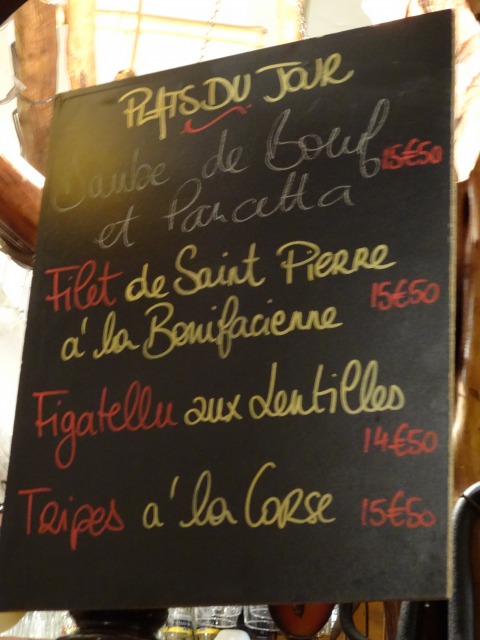 PLATS DU JOUR
Daube de Bœuf 15€50
et Pancetta
Filet de Saint Pierre
à la Bonifacienne 15€50
Figatellu aux Lentilles
14€50
Tripes à la Corse 15€50